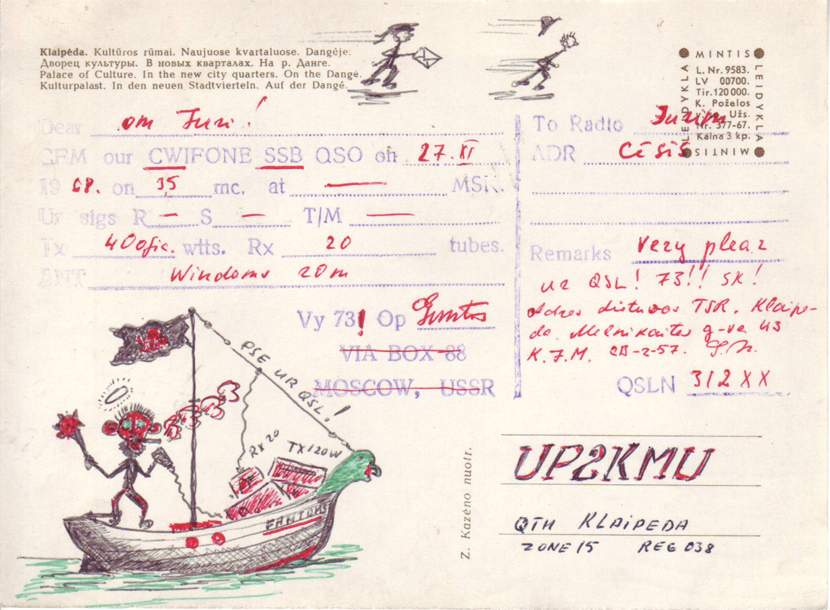 Klaipėda. Kultūros rūmai. Naujuose kvartaluose. Dangėje.
Дворец культуры. В новых кварталах. На р. Данге.
Palace of Culture. In the new city quarters. On the Dangė.
Kulturpalast. In den neuen Stadtvierteln. Auf der Dangė.
MINTIS
LEIDYKLA
L. Nr. 9583.
LV 00700.
Tir. 120 000.
K. Poželos
Užs.
Nr. 377-67.
Kaina 3 kp.
LEIDYKLA
MINTIS
Dear om Juri!
CFM our CWIFONE SSB QSO on 27. XI
19 68. on 3,5 mc. at — MSK.
Ur sigs R — S — T/M —
Tx 40 wtts. Rx 20 tubes.
ANT Windoms 20m
Vy 73! Op
VIA BOX-88
MOSCOW, USSR
To Radio
ADR Cēsis
Remarks very
ur QSL! 73!! SK!
TSR. Klaipe-
da
QSLN 312XX
PSE UR QSL!
RX20
TX120W
FANTOMS
Z. Kazėno nuotr.
UP2KMU
QTH KLAIPEDA
ZONE 15 REG 038